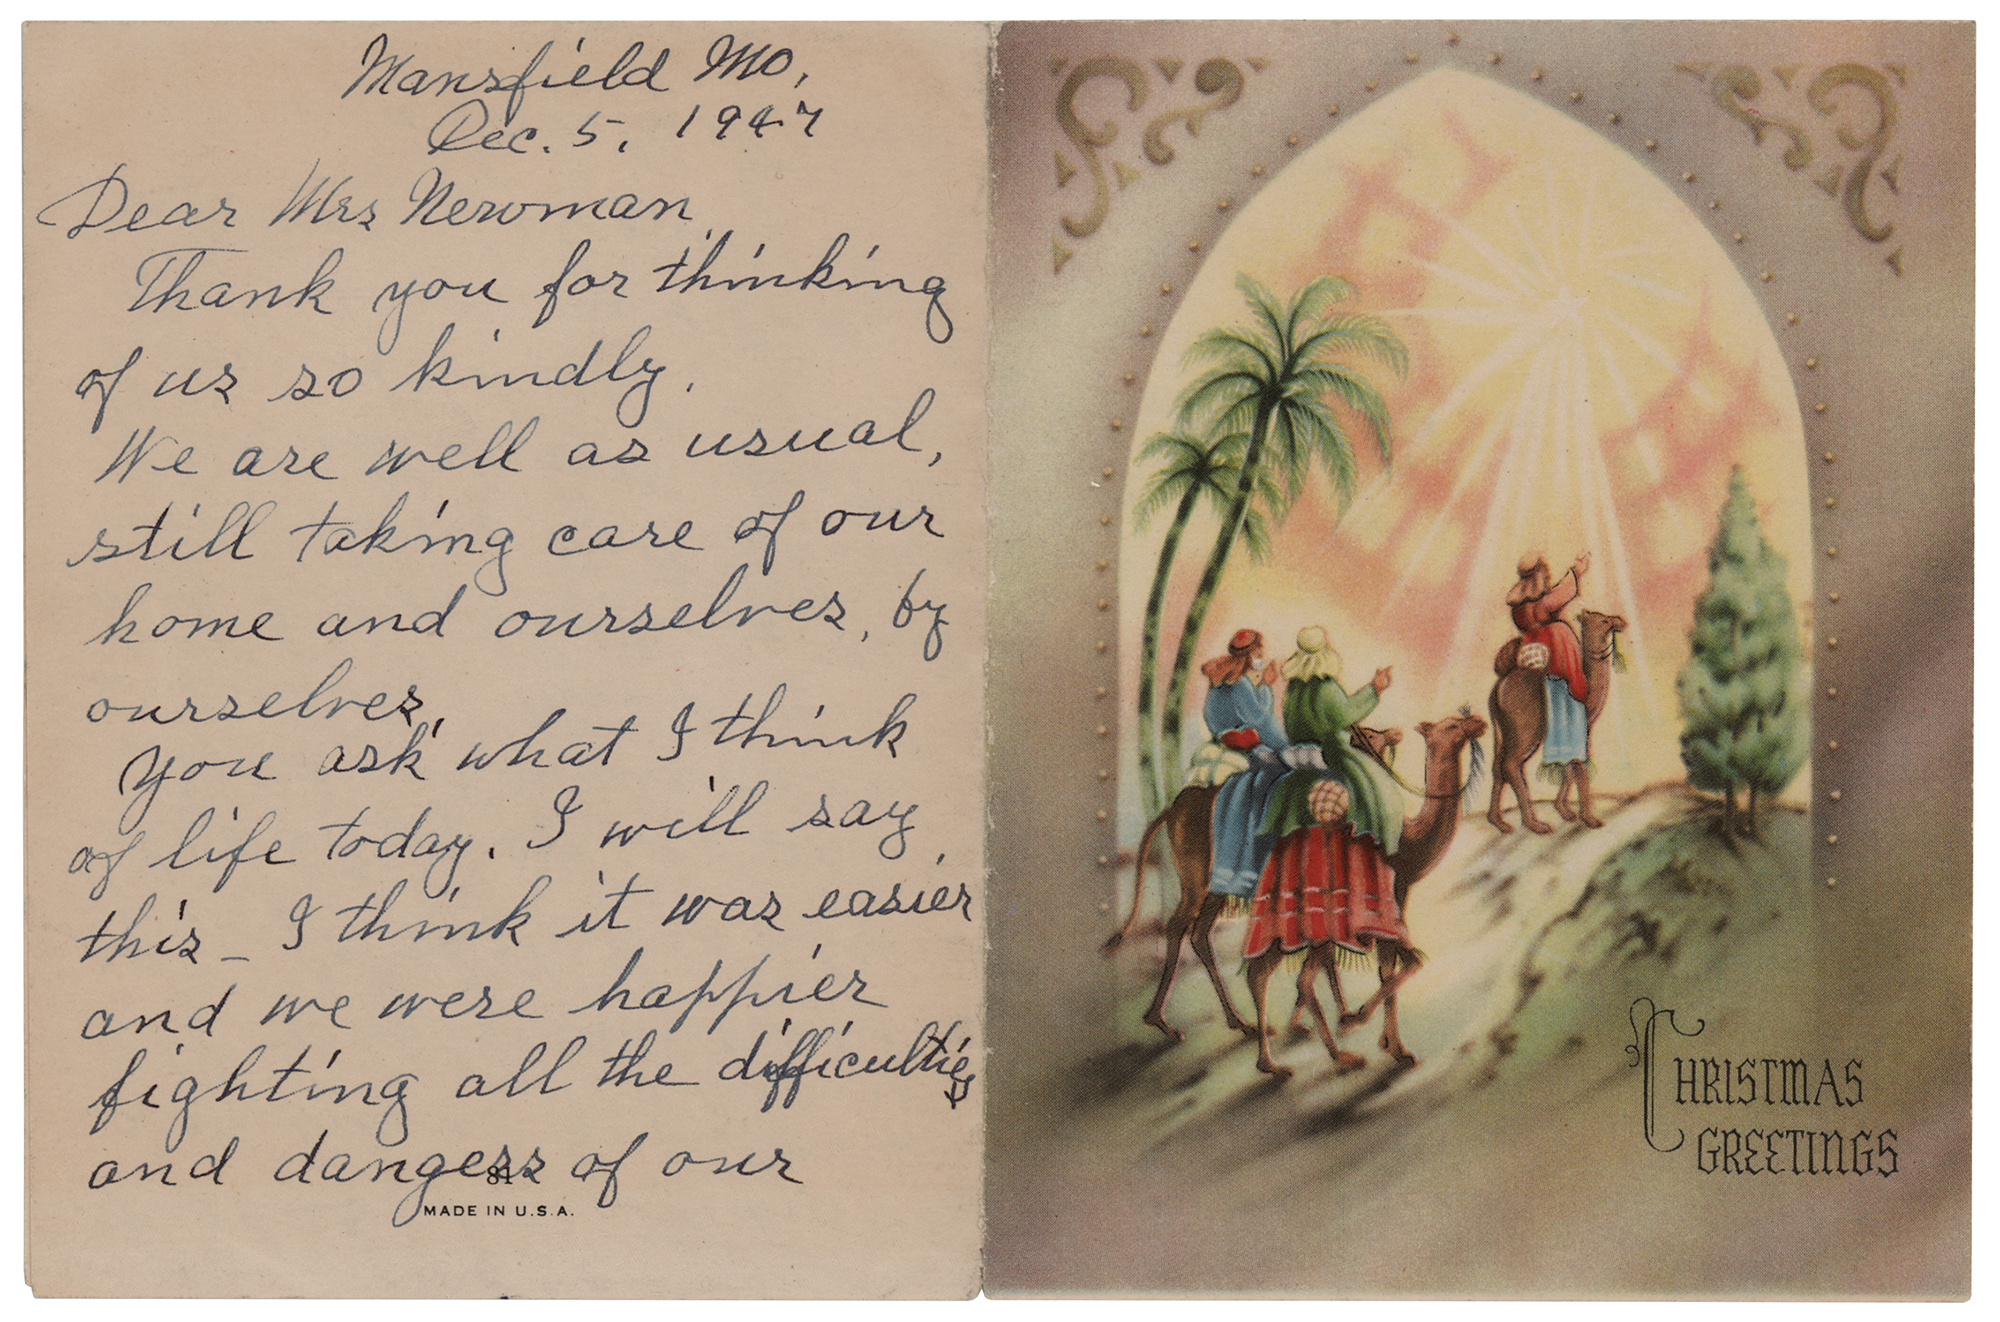 Mansfield Mo,
Dec. 5, 1947
Dear Mrs Newman
Thank you for thinking
of us so kindly.
We are well as usual,
still taking care of our
home and ourselves, by
ourselves.
You ask what I think
of life today. I will say
this – I think it was easier
and we were happier
fighting all the difficulties
and dangers of our
81
MADE IN U.S.A.
CHRISTMAS
GREETINGS